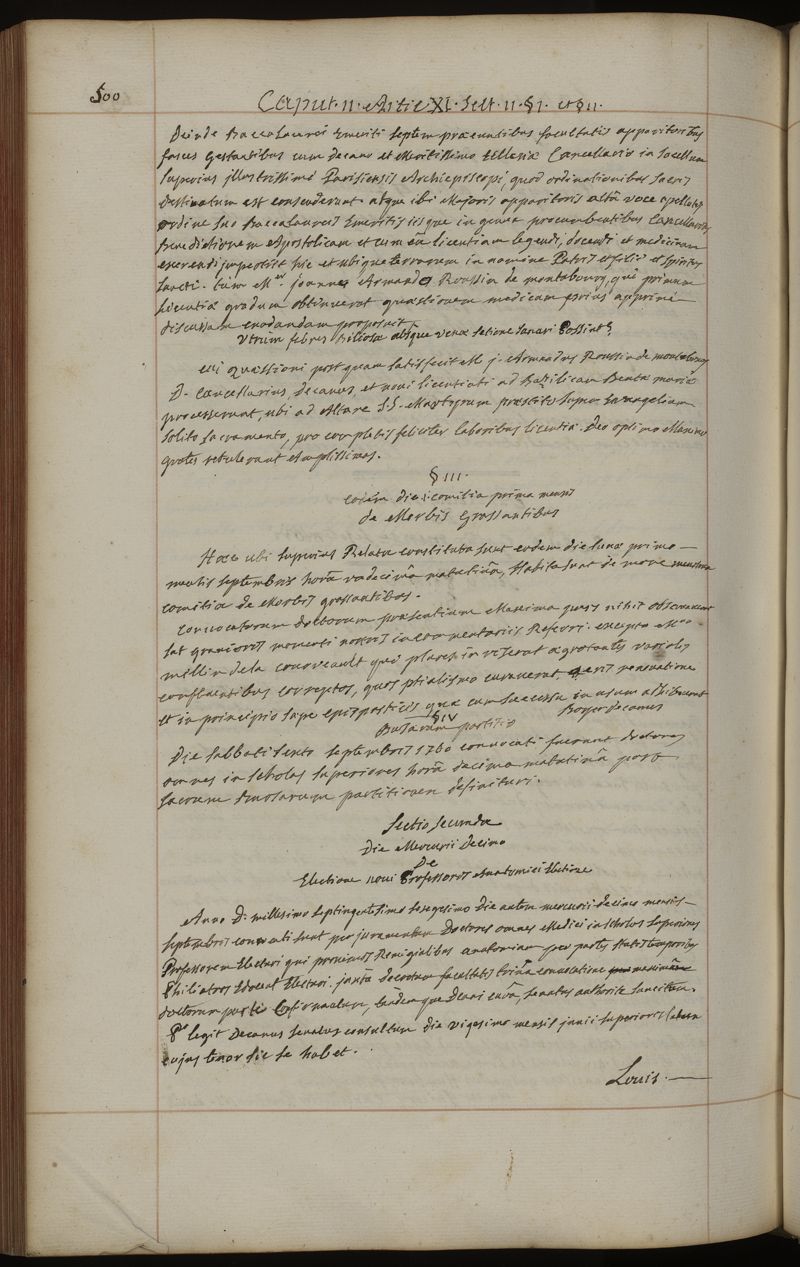 500
Caput. 11. Artic. XI. Sect. 11. §1. et §11.
Deinde Baccalaurei Emeriti septem praeeuntibus facultatis apparitoribus
fasces gestantibus cum decano et Meritissimo Ecclesiae Cancellario in sacellum
superius illustrissimi Parisiensis Archiepiscopi, quod ordinationibus sacris
Destinatum est consenderunt atque ibi Majoris apparitoris altâ voce apellatis
ordine suo Baccalaureis Emeritis iisque in genua procumbentibus Cancellarius
Benedictionem Apostolicam et cum eâ licentiam legendi, docendi et medicinam
exercendi impertiit hic et ubique terrarum in nomine Patris et filii et spiritus
sancti. tùm Mer. joannes Armando Roussin de montabourg, qui primum
licentiae gradum obtinuerat quaestionem medicam prius apprimè
discussam enodandam proposuit
Utrum febres biliosae absque venae sectione sanari Possint?
cui quaestioni postquam satisfecit M. j. Armandus Roussin de montabourg
D. Cancellarius, decanus, et novi licentiati ad Basilicam Beatae mariae
processerunt, ubi ad Altare S.S. Martyrum praestito super Evangelium
solito sacramento, pro completis feliciter laboribus licentiae. Deo optimo Maximo
grates retulerunt Amplissimas.
§ III.
eodem die comitia prima mensis
de Morbis Grassantibus
Haec ubi superius Relata constituta sunt eodem die lunae primo
mensis septembris horâ undecimâ matutinâ, Habita sunt de more menstrua
comitia de Morbis grassantibus.
Convocatorum doctorum praesentium Maxima pars nihil observaverat
sat gravioris momenti nostris in commentariis Referri. excepto Mro
millin dela Courveault qui plures inviserat aegrotantes variolis
confluentibus correptos, quos ptialismo curaverat aeris renovatione
et in principio saepe epispasticis quae cum successu in usum adhibuerat
§IV Boyer decanus
Bursarum partitio
Die sabbati sexto septembris 1760 convocati fuerunt doctores
omnes in scholas superiores horâ decima matutinâ pro
sacrum bursarum partitionem definituri.
Sectio secunda
Die Mercurii Decimo
De
Electione novi Professoris Anatomici Electione
Anno D. millesimo septingentesimo sexagesimo die autem mercurii decimo mensis
septembris convocati sunt per juramentum Doctores omnes Medici in scholas superiores
Professorem Electuri qui proximis Remigialibus anatomiam per partes statis temporibus
Philiatros Edoceat Electuri. juxta decretum facultatis trinâ convocatione
doctorum parte Confirmatum, tandemque senatus authoritate sancitum.
legit Decanus senatus consultum die vigesimo mensis junii superioris latum
cujus tenor sic se habet.
Louis.